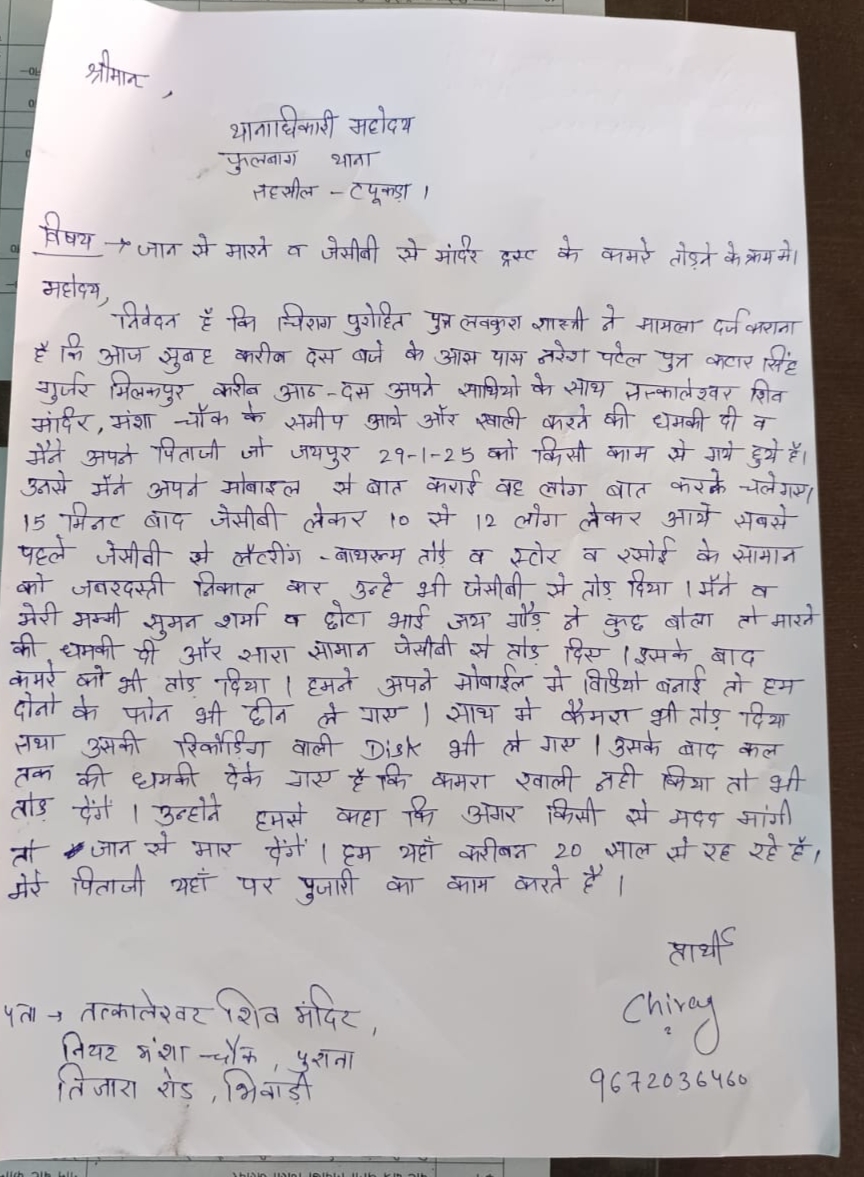 श्रीमान,
थानाधिकारी महोदय
फुलबाग थाना
तहसील - टपूकड़ा ।
विषय → जान से मारने व जेसीबी से मंदिर ट्रस्ट के कमरे तोड़ने के क्रम मे।
महोदय,
निवेदन है कि चिराग पुरोहित पुत्र लवकुश शास्त्री ने मामला दर्ज कराना
है कि आज सुबह करीब दस बजे के आस पास नरेश पटेल पुत्र कटार सिंह
गुर्जर मिलकपुर करीब आठ-दस अपने साथियो के साथ तत्कालेश्वर शिव
मंदिर, मंशा चौक के समीप आये और खाली करने की धमकी दी व
मैंने अपने पिताजी जो जयपुर 29-1-25 को किसी काम से गये हुये है।
उनसे मैंने अपने मोबाइल से बात कराई वह लोग बात करके चले गए।
15 मिनट बाद जेसीबी लेकर 10 से 12 लोग लेकर आये सबसे
पहले जेसीबी से लैटरींग - बाथरूम तोड़े व स्टोर व रसोई के सामान
को जबरदस्ती निकाल कर उन्हे भी जेसीबी से तोड़ दिया । मैंने व
मेरी मम्मी सुमन शर्मा व छोटा भाई जय गौड़ ने कुछ बोला तो मारने
की धमकी दी और सारा सामान जेसीबी से तोड़ दिए । इसके बाद
कमरे को भी तोड़ दिया । हमने अपने मोबाईल मे विडियो बनाई तो हम
दोनो के फोन भी छीन ले गए । साथ मे कैमरा भी तोड़ दिया
तथा उसकी रिकॉर्डिंग वाली Disk भी ले गए । उसके बाद कल
तक की धमकी देके गए है कि कमरा खाली नही किया तो भी
तोड़ देंगें । उन्होने हमसे कहा कि अगर किसी से मदद मांगी
तो जान से मार देंगें । हम यहाँ करीबन 20 साल से रह रहे है ।
मेरे पिताजी यहाँ पर पुजारी का काम करते है ।
प्रार्थी
Chirag
9672036460
पता → तत्कालेश्वर शिव मंदिर,
नियर मंशा - चौक, पुराना
तिजारा रोड़, भिवाड़ी